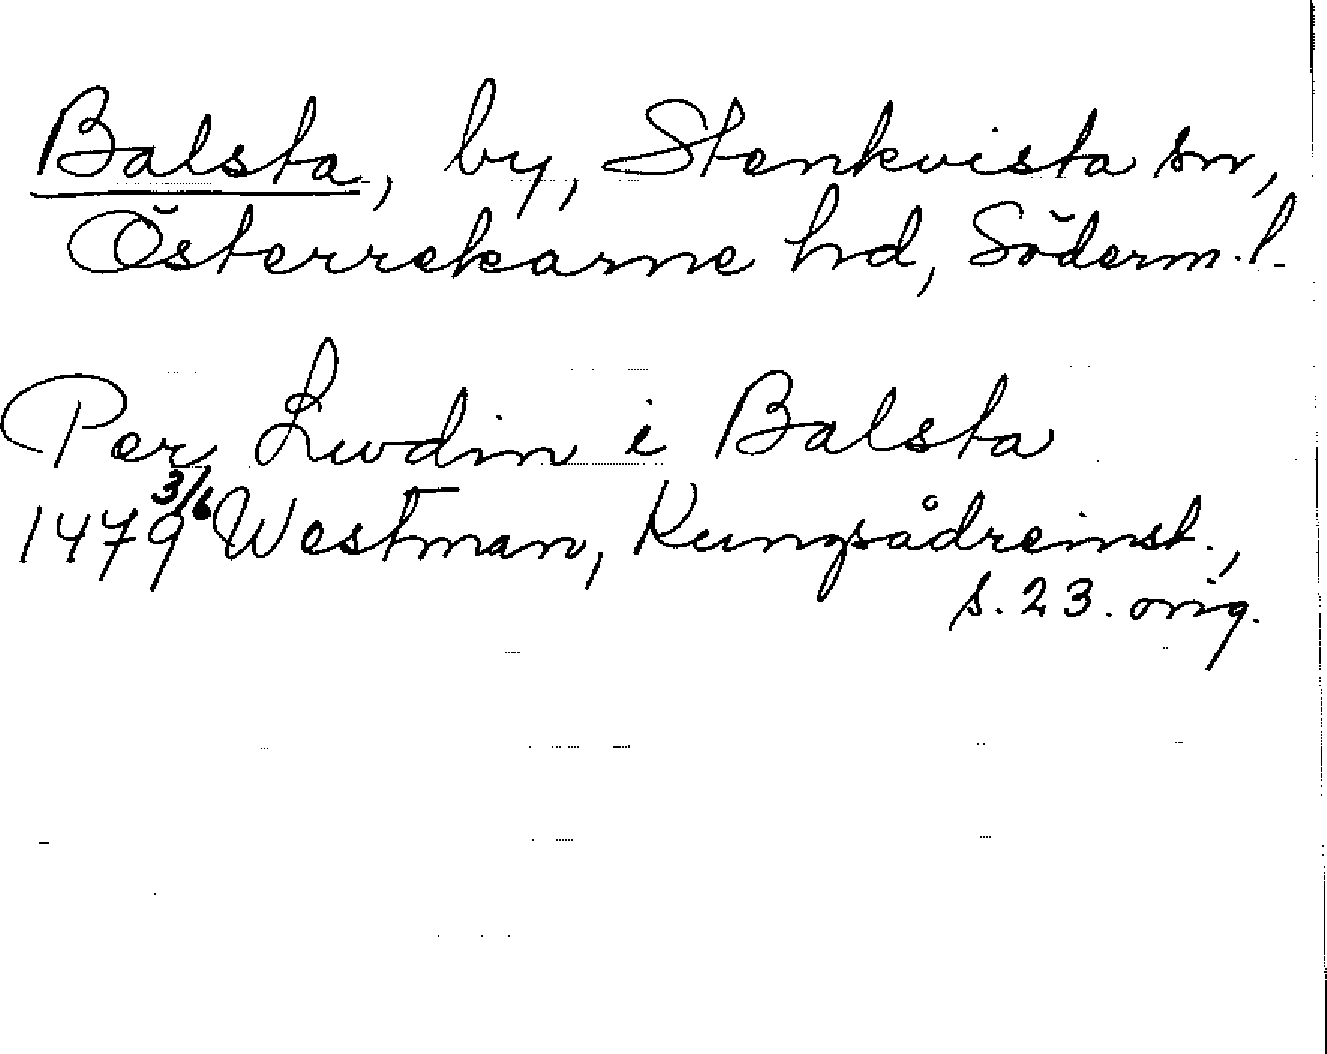 Balsta, by, Stenkvista sn,
Österrekarne hd, Söderm.l.
Per Lwdin i Balsta
1479 3/6 Westman, Kungsådreinst.,
s. 23. orig.